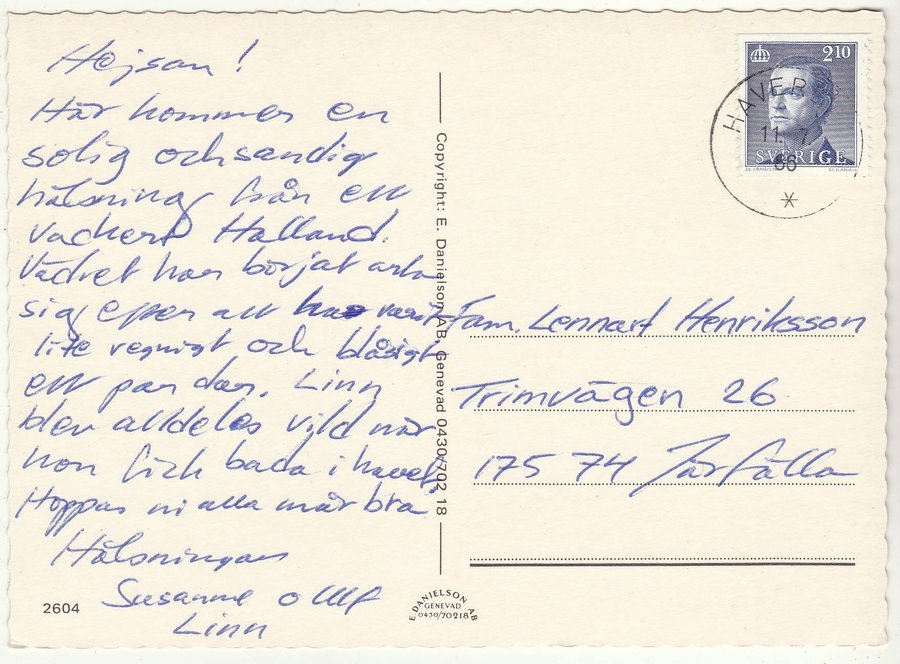 Hejsan!
Här kommer en
solig och sandig
hälsning från ett
vackert Halland.
Vädret har börjat arta
sig efter att ha varit
lite regnigt och blåsigt
ett par dar. Linn
blev alldeles vild när
hon fick bada i havet.
Hoppas ni alla mår bra
Hälsningar
Susanne o Ulf
Linn
2604
Copyright: E. Danielson AB, Genevad 0430/702 18
E. DANIELSON AB
GENEVAD
0430/70218
210
SVERIGE
HAVER
11. 7.
86
Fam. Lennart Henriksson
Trimvägen 26
175 74 Järfälla